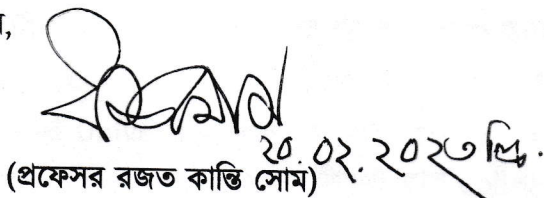 ,
২০.০২.২০২৩ খ্রি.
(প্রফেসর রজত কান্তি সোম)